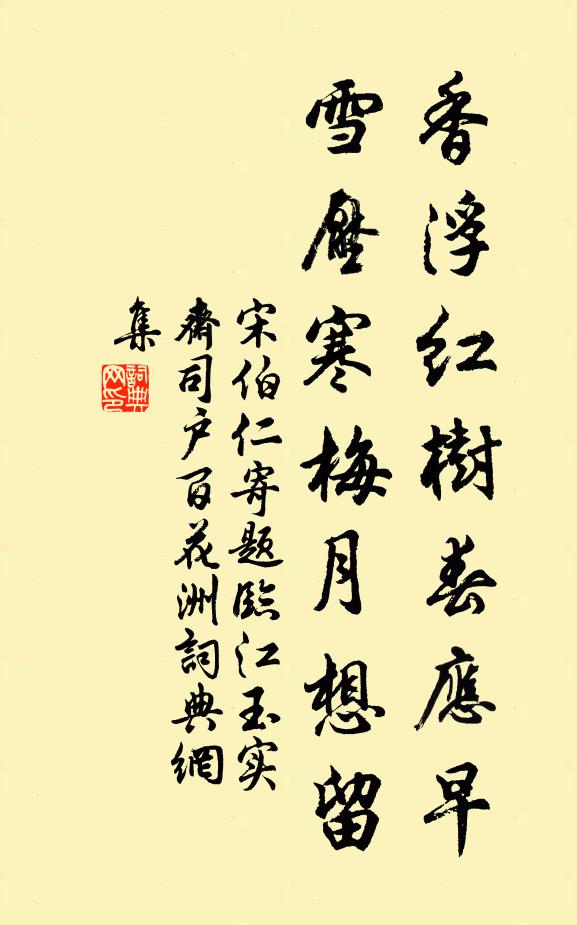 香浮红樹春應早
雪壓寒梅月想留
宋伯仁寄题臨江玉实
齋司户百花洲詞典網
集
詞典
网印